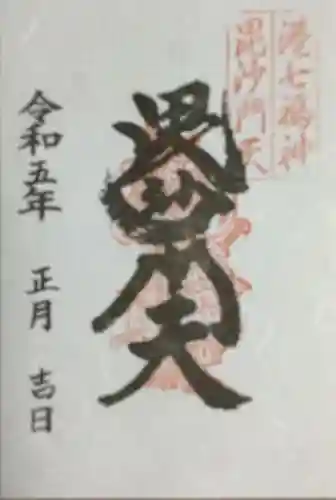 港七福神
毘沙門天
毘沙門天
令和五年 正月 吉日